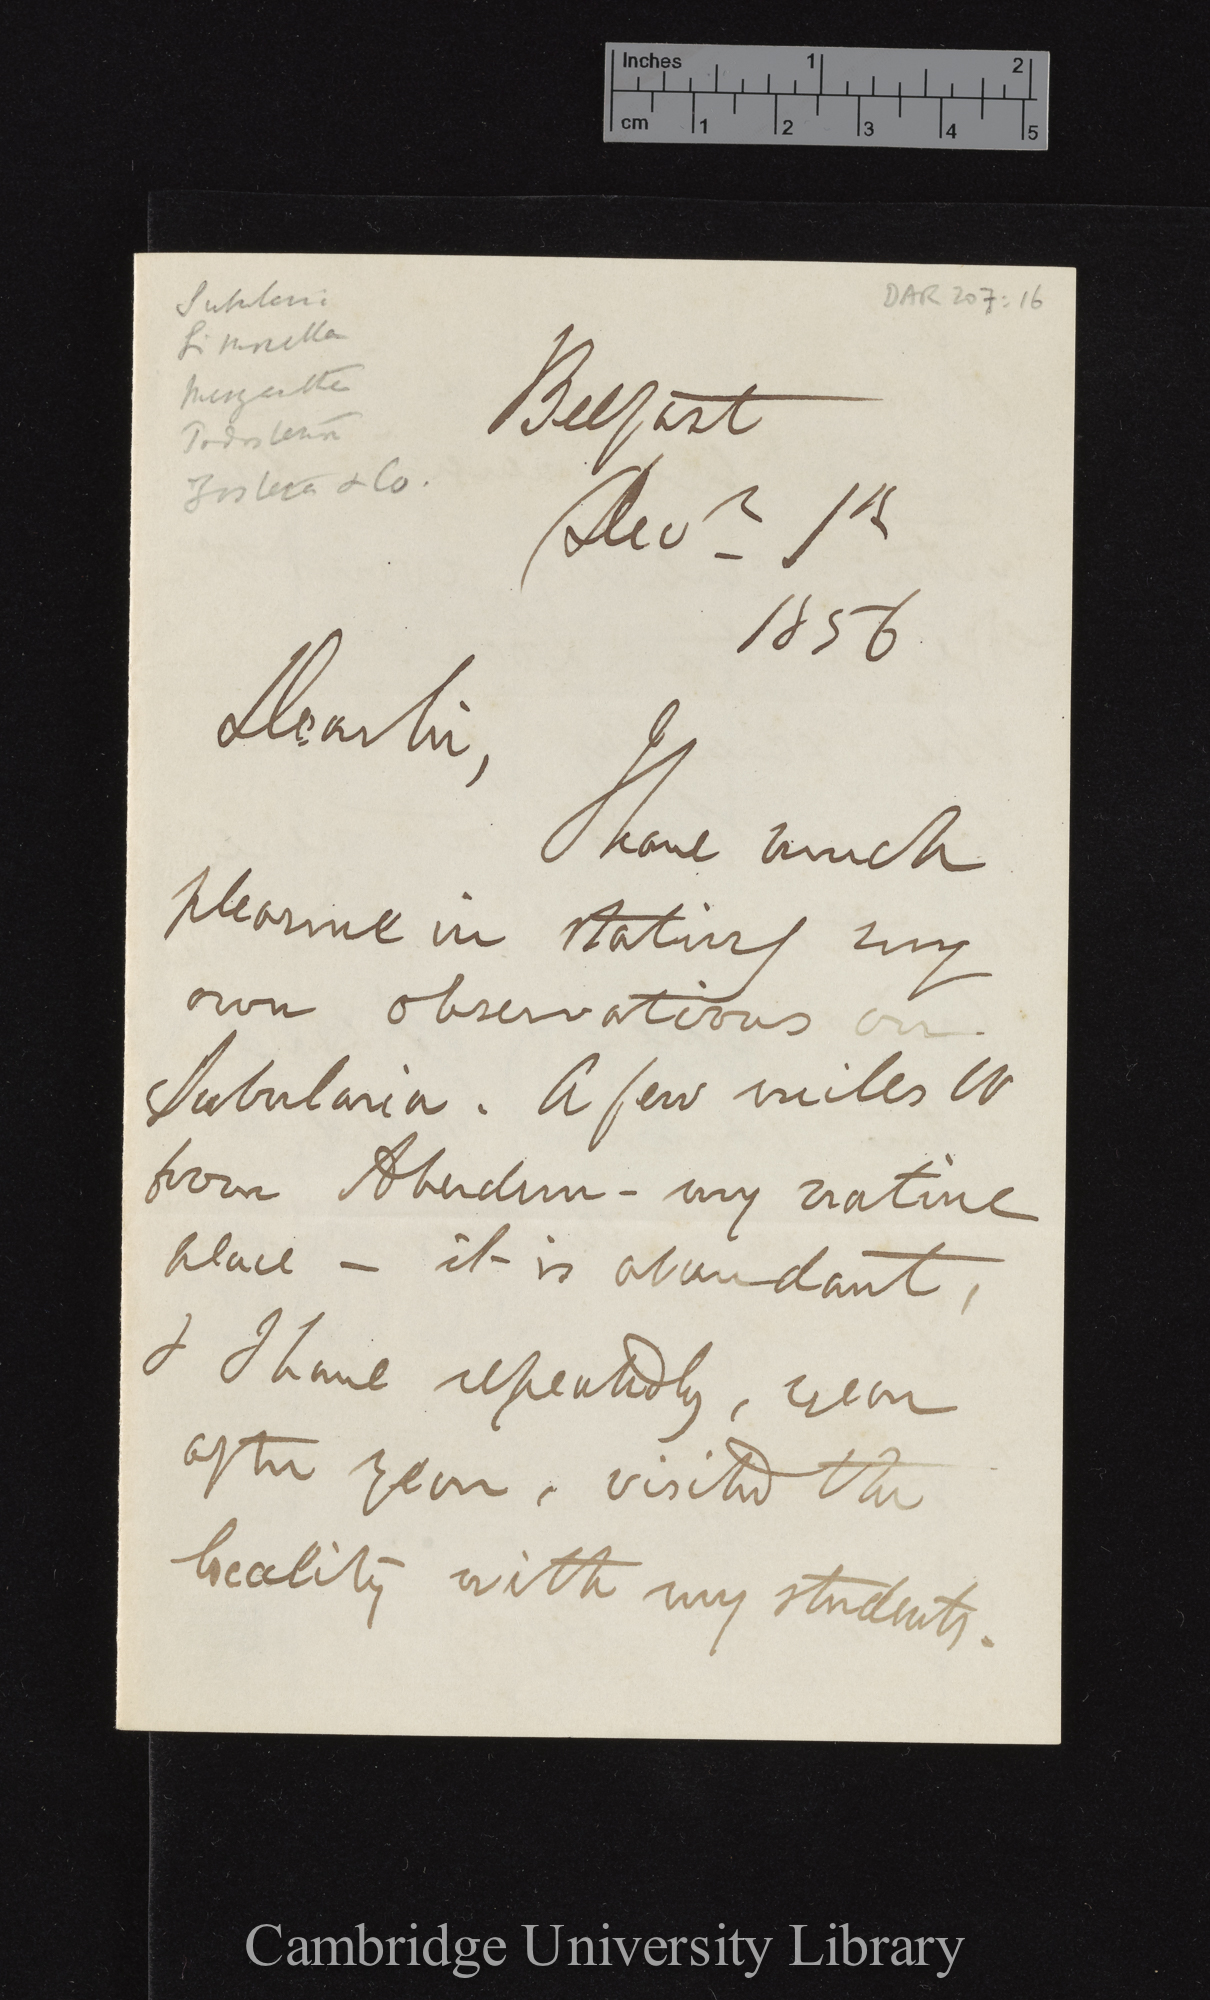 Inches 1 2
cm 1 2 3 4 5
DAR 207: 16
Subularia
Limosella
Podostemon
Zostera & Co.
Belfast
Decr 1st
1856
Dear Sir,
I have much
pleasure in stating my
own observations on
Subularia. A few miles W
from Aberdeen - my native
place - it is abundant,
& I have repeatedly, year
after year, visited the
locality with my students.
Cambridge University Library